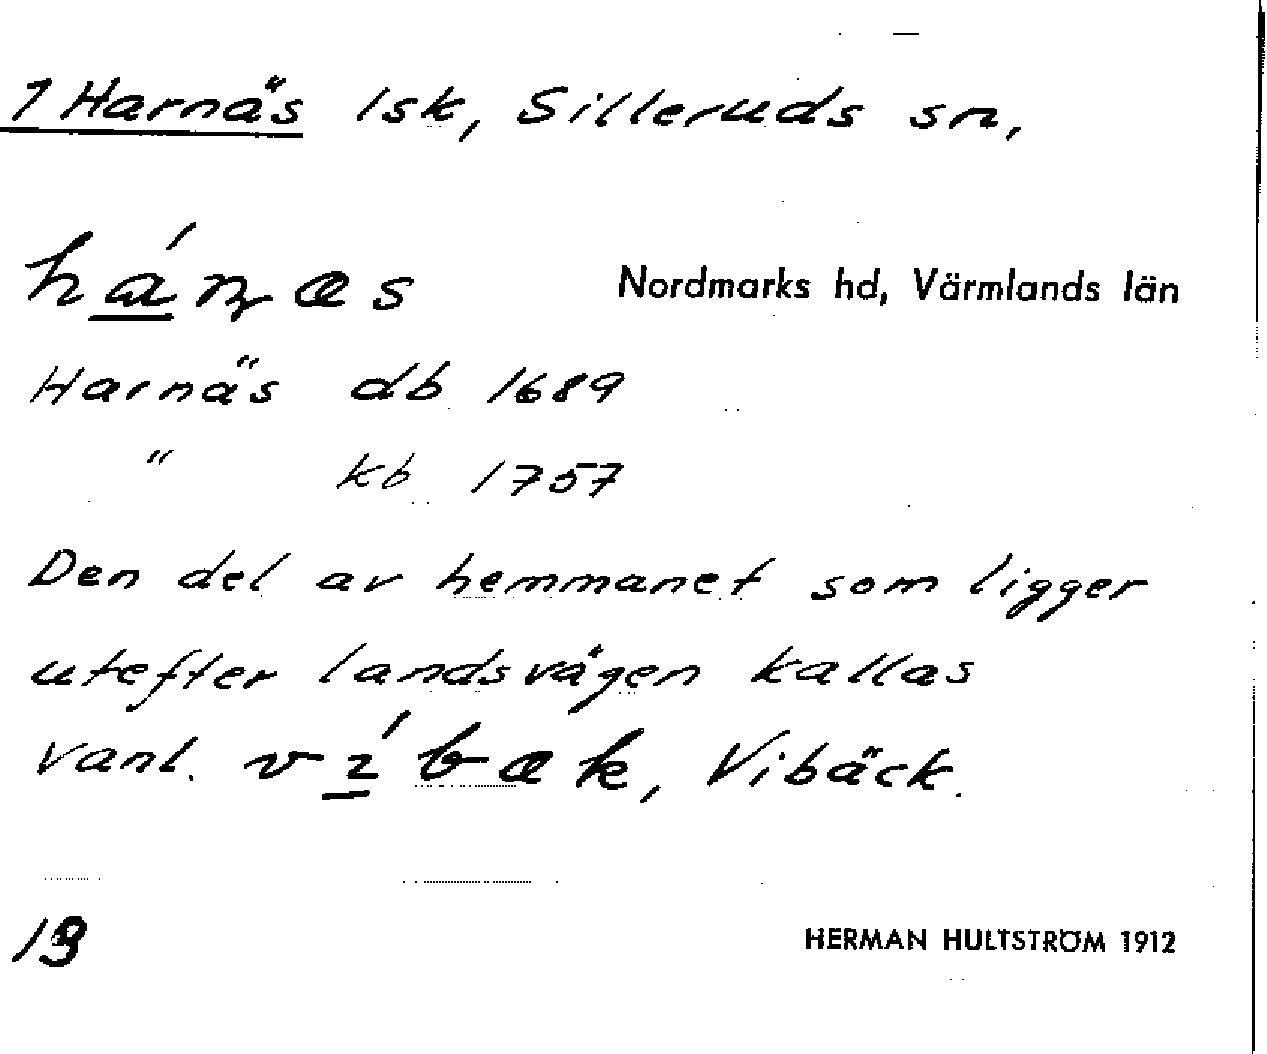 1 Harnäs 1sk, Silleruds sn,
há̱ɳæs Nordmarks hd, Värmlands län
Harnäs db 1689
" kb 1757
Den del av hemmanet som ligger
utefter landsvägen kallas
vanl. vɪ̱́bæk, Vibäck.
HERMAN HULTSTRÖM 1912